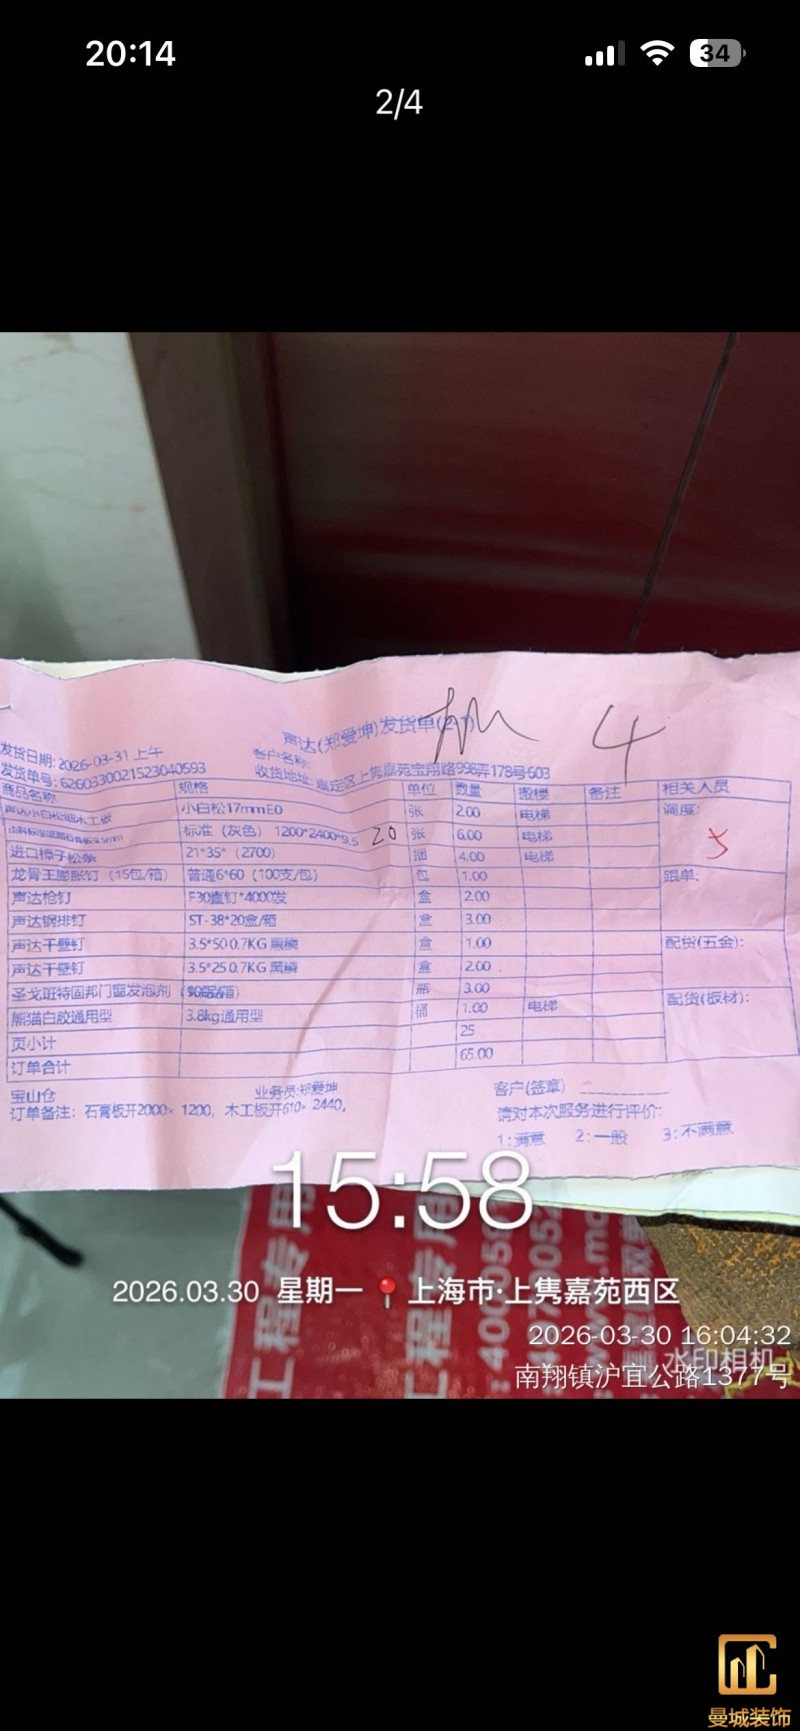 20:14
34
2/4
声达(郑爱坤)发货单(2-1)
4
发货日期: 2026-03-31 上午
客户名称:
发货单号: 6260330021523040593
收货地址: 嘉定区上隽嘉苑宝翔路998弄178号603
商品名称 规格 单位 数量 搬楼 备注 相关人员
声达小白松细木工板 小白松17mmE0 张 2.00 电梯 调度:
标准（灰色） 1200*2400*9.5 20 张 6.00 电梯
进口樟子松条 21*35*（2700） 捆 4.00 电梯
龙骨王膨胀钉（15包/箱） 普通6*60（100支/包） 包 1.00 跟单:
声达枪钉 F30直钉*4000发 盒 2.00
声达钢排钉 ST-38*20盒/箱 盒 3.00
声达干壁钉 3.5*50 0.7KG 黑磷 盒 1.00 配货(五金):
声达干壁钉 3.5*25 0.7KG 黑磷 盒 2.00
圣戈班特固邦门窗发泡剂 瓶 3.00 配货(板材):
熊猫白胶通用型 3.8kg通用型 桶 1.00 电梯
页小计 25
订单合计 65.00
宝山仓 业务员:郑爱坤 客户(签章)
订单备注: 石膏板开2000* 1200, 木工板开610* 2440,
请对本次服务进行评价:
1:满意 2:一般 3:不满意
15:58
2026.03.30 星期一 上海市·上隽嘉苑西区
2026-03-30 16:04:32
水印相机
南翔镇沪宜公路1377号
工程专用
工程专用
曼城装饰